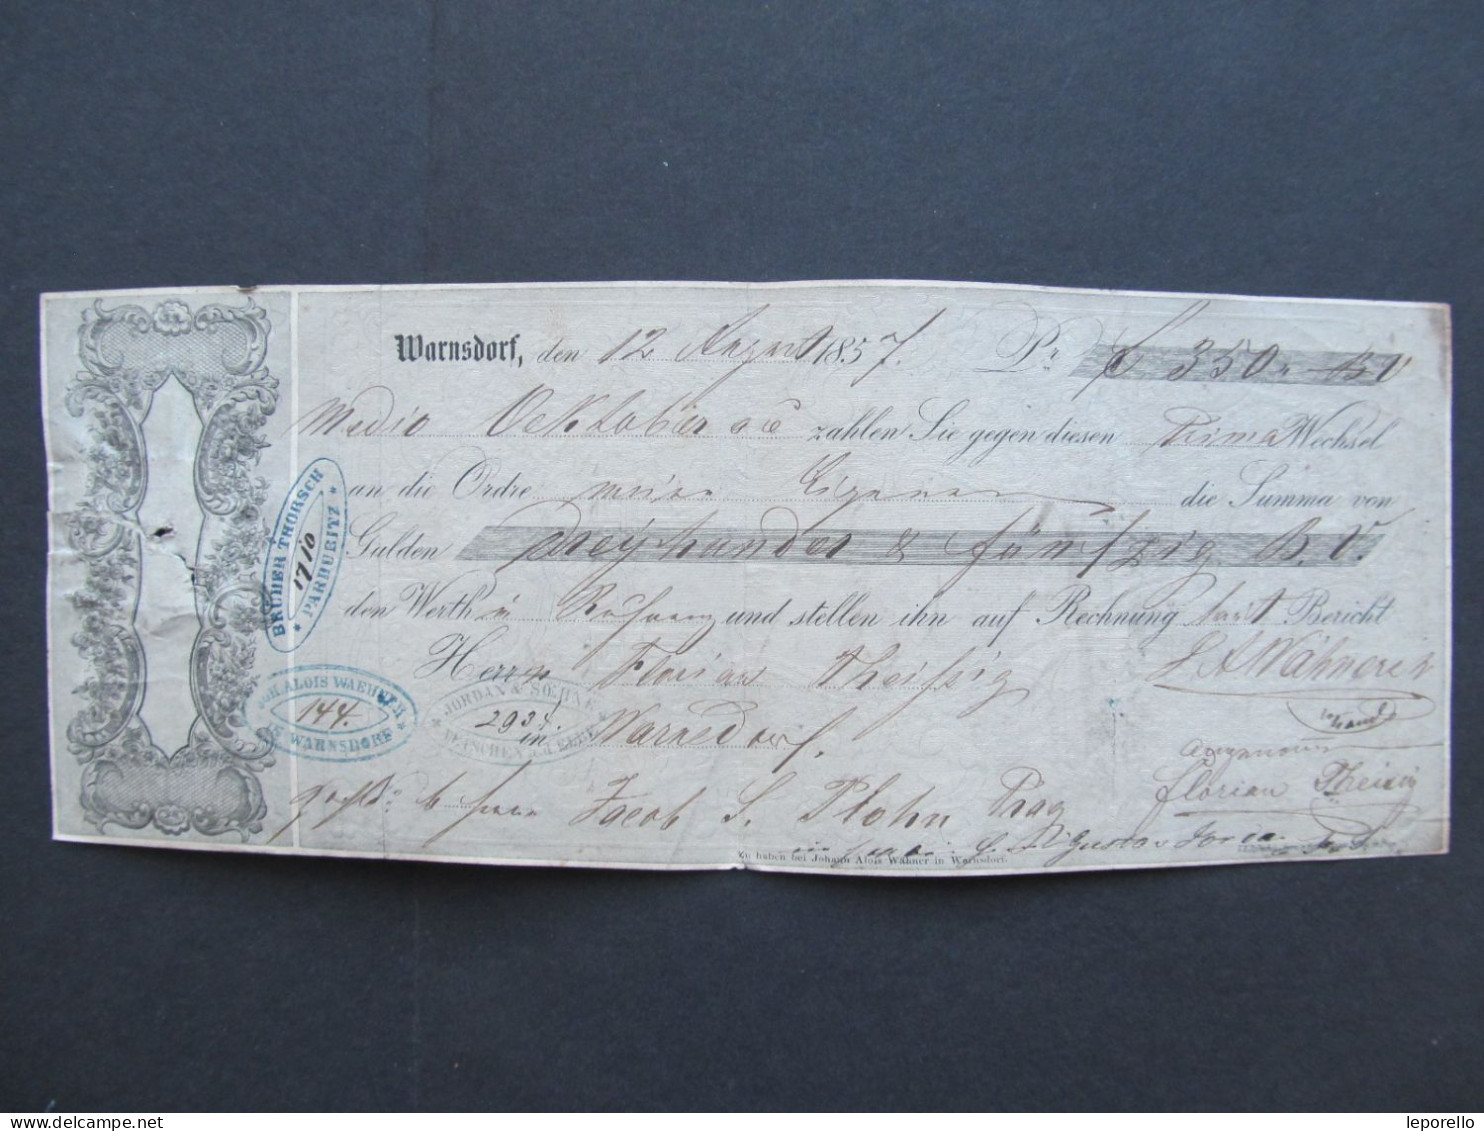 Warnsdorf, den 12 August 1857. Pr f 350,, B V
Medio Oektober a c zahlen Sie gegen diesen Prima Wechsel
an die Ordre meine Eigene die Summa von
Gulden Dreyhundert & fünfzig B. V.
den Werth in Rechnung und stellen ihn auf Rechnung laut Bericht
Herrn Florian Theissig J A Wähner
in Warnsdorf.
Angenommen
Florian Theissig
Jacob S. Plohn Prag
Zu haben bei Johann Alois Wähner in Warnsdorf.
BRÜDER THORSCH
1710
* PARDUBITZ *
JOH. ALOIS WAEHNER
144.
* WARNSDORF *
* JORDAN & SOEHNE *
2937.
TETSCHEN A/D ELBE
leporello
delcampe.net